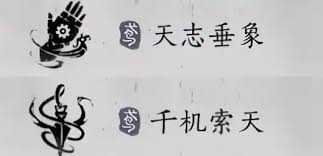 鸢 天志垂象
鸢 千机索天